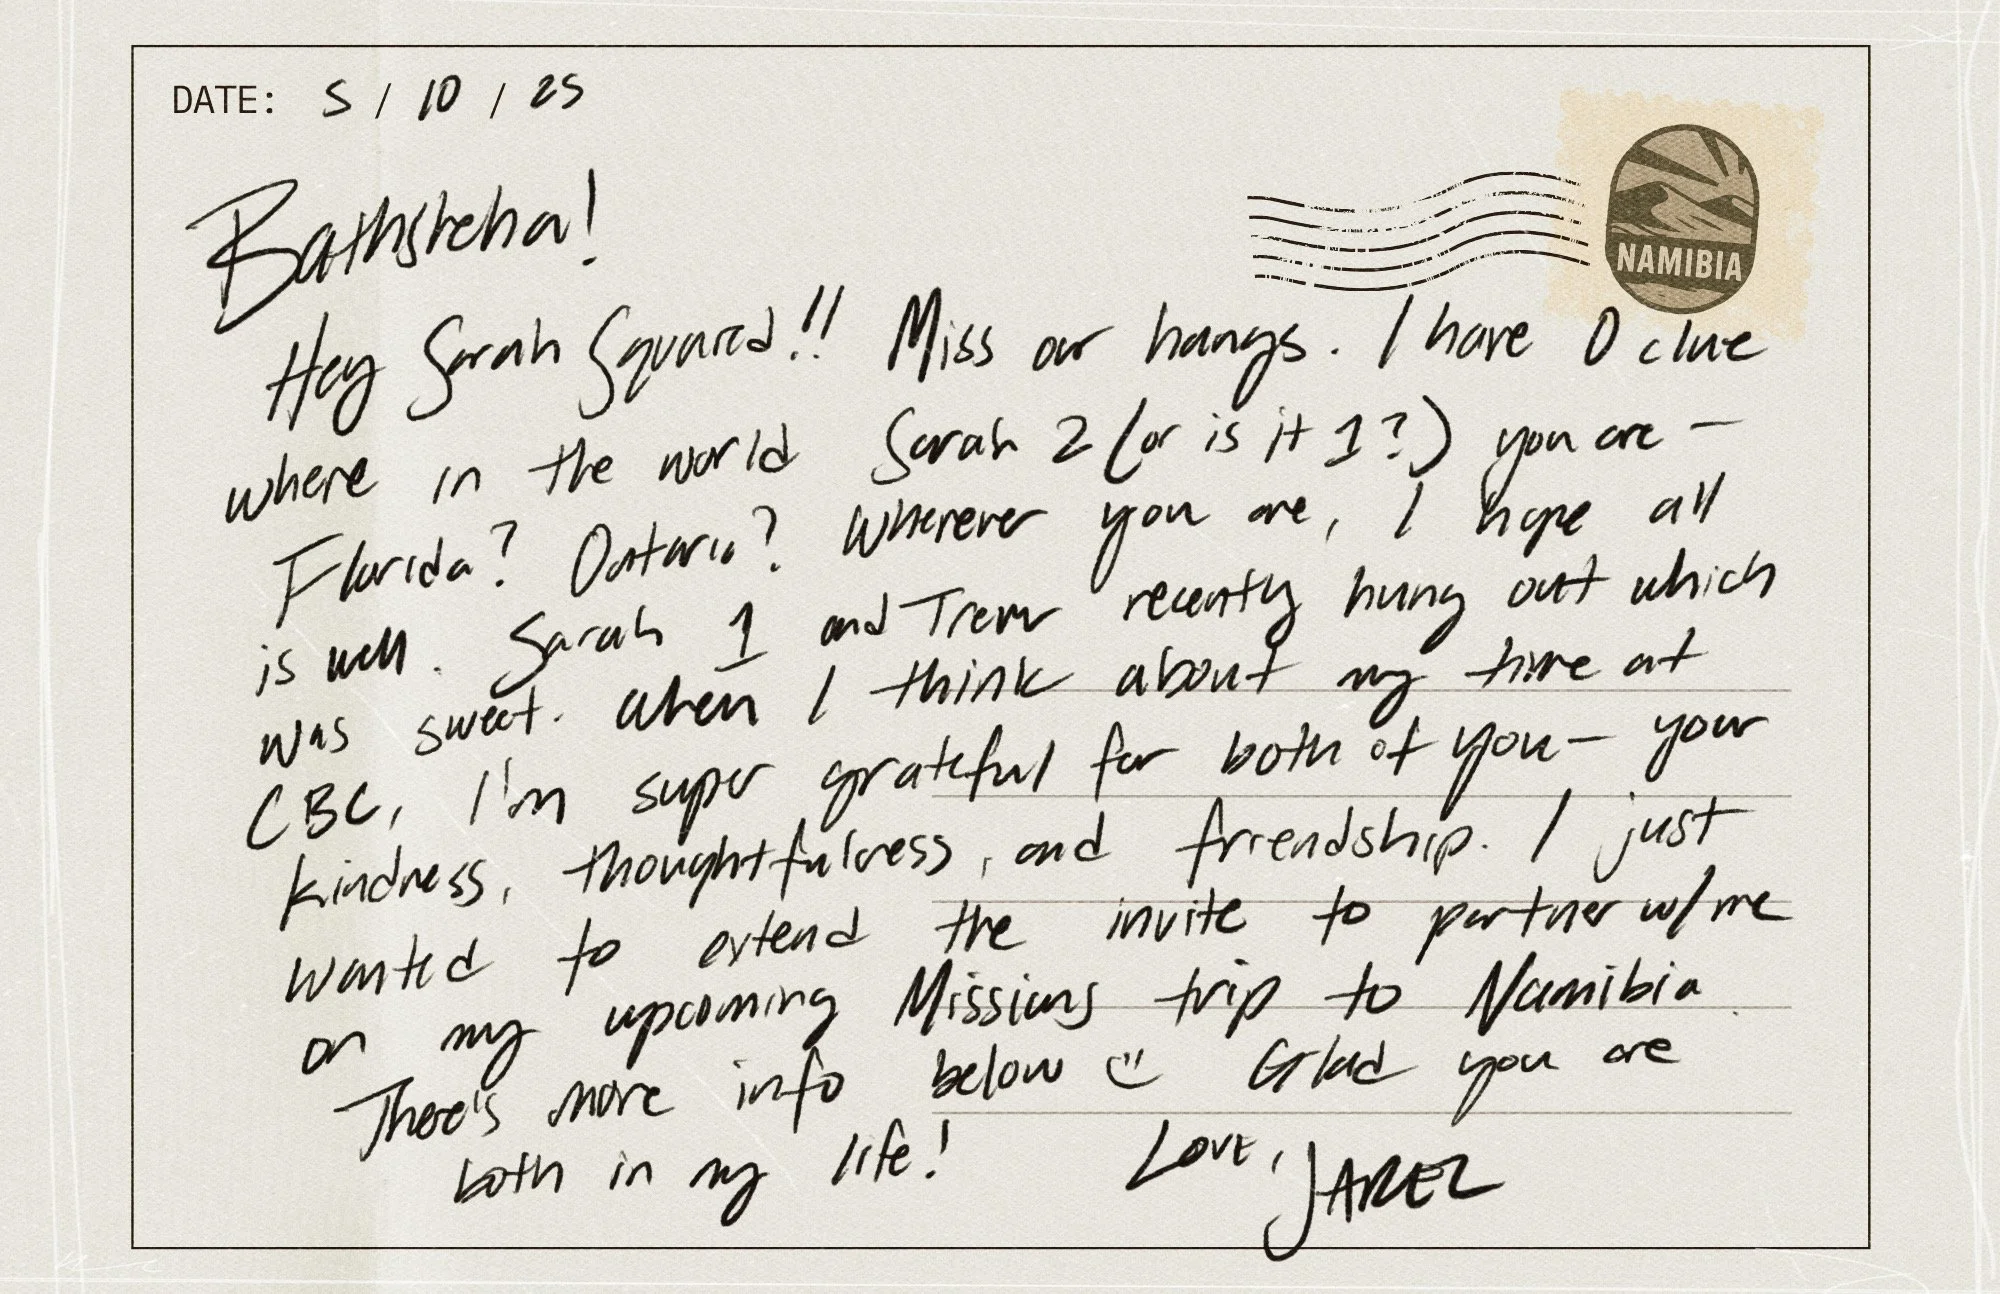 DATE: 5 / 10 / 25
Bathsheba!
NAMIBIA
Hey Sarah Squared!! Miss our hangs. I have 0 clue
where in the world Sarah 2 (or is it 1?) you are —
Florida? Ontario? Wherever you are, I hope all
is well. Sarah 1 and Trevor recently hung out which
was sweet. When I think about my time at
CBC, I'm super grateful for both of you — your
kindness, thoughtfulness, and friendship. I just
wanted to extend the invite to partner w/ me
on my upcoming Missions trip to Namibia.
There's more info below :) Glad you are
both in my life! Love, JAREL